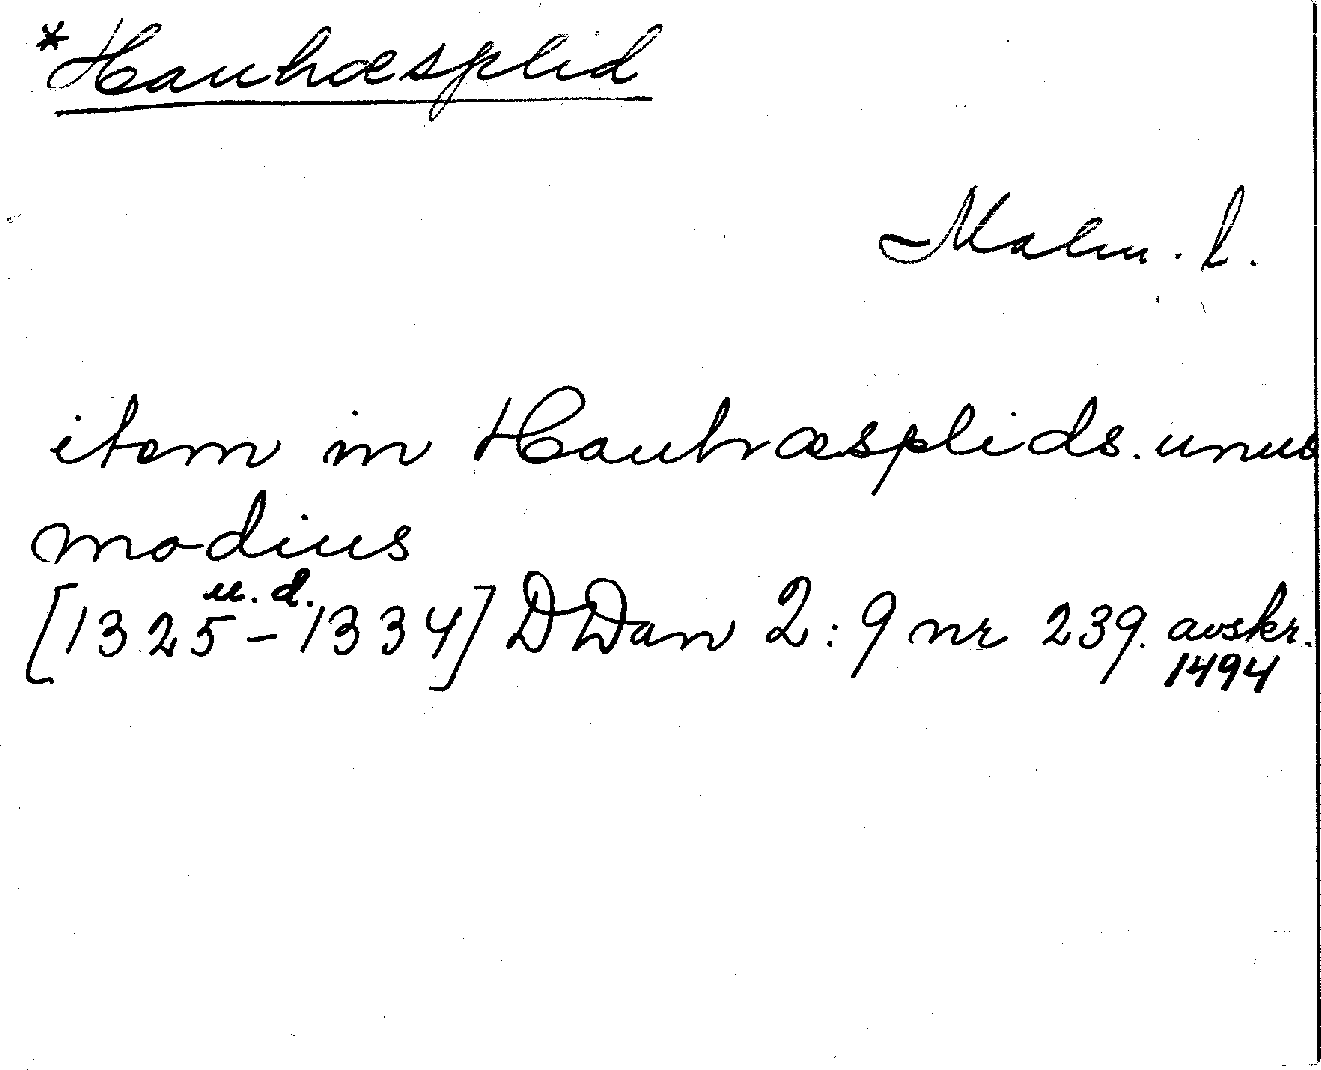 *Hauhæsplid
Malm. l.
item in Hauhræsplids. unus
modius
u. d.
[1325-1334] DDan 2:9 nr 239. avskr.
1494